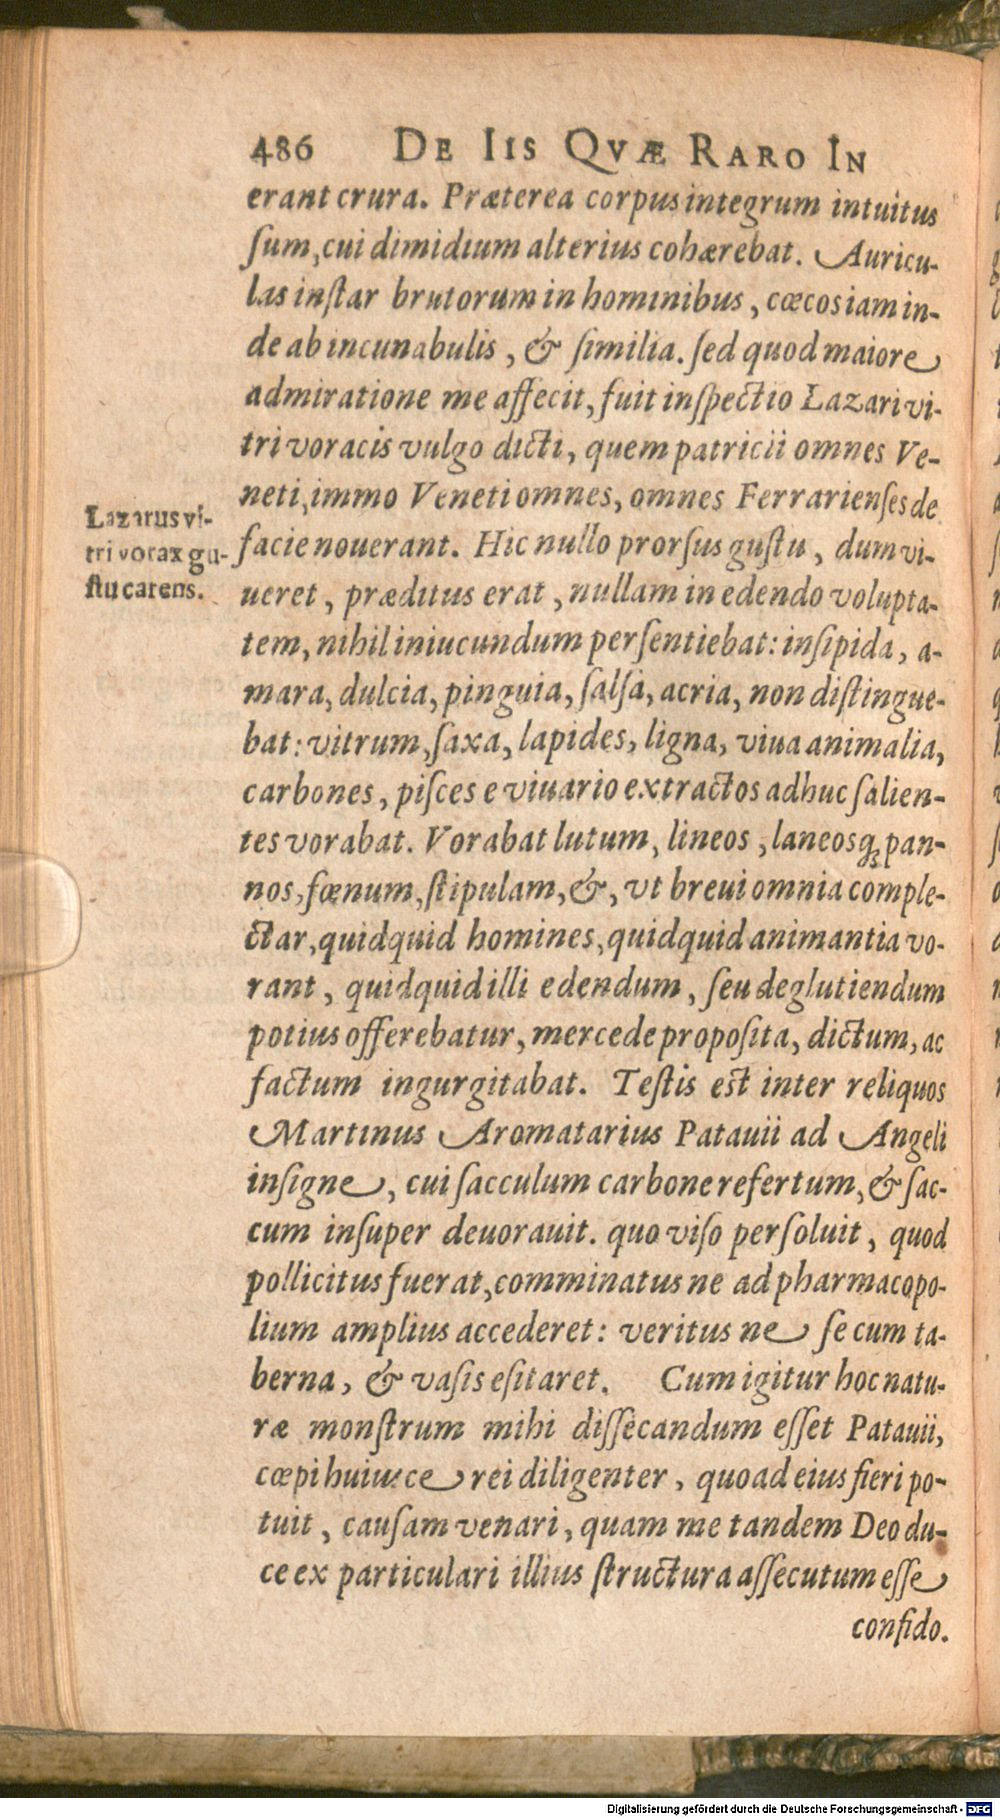 486 DE IIS QVÆ RARO IN
erant crura. Præterea corpus integrum intuitus
ſum, cui dimidium alterius cohærebat. Auricu-
las inſtar brutorum in hominibus, cœcos iam in-
de ab incunabulis, & ſimilia. ſed quod maiore
admiratione me affecit, fuit inſpectio Lazari vi-
tri voracis vulgo dicti, quem patricii omnes Ve-
neti, immo Veneti omnes, omnes Ferrarienſes de
facie nouerant. Hic nullo prorſus guſtu, dum vi-
Lazarus vi-
tri vorax gu-
ſtu carens.
ueret, præditus erat, nullam in edendo volupta-
tem, nihil iniucundum perſentiebat: inſipida, a-
mara, dulcia, pinguia, ſalſa, acria, non diſtingue-
bat: vitrum, ſaxa, lapides, ligna, viua animalia,
carbones, piſces e viuario extractos adhuc ſalien-
tes vorabat. Vorabat lutum, lineos, laneosq; pan-
nos, fœnum, ſtipulam, &, vt breui omnia comple-
ctar, quidquid homines, quidquid animantia vo-
rant, quidquid illi edendum, ſeu deglutiendum
potius offerebatur, mercede propoſita, dictum, ac
factum ingurgitabat. Teſtis eſt inter reliquos
Martinus Aromatarius Patauii ad Angeli
inſigne, cui ſacculum carbone refertum, & ſac-
cum inſuper deuorauit. quo viſo perſoluit, quod
pollicitus fuerat, comminatus ne ad pharmacopo-
lium amplius accederet: veritus ne ſecum ta-
berna, & vaſis eſitaret. Cum igitur hoc natu-
ræ monſtrum mihi diſſecandum eſſet Patauii,
cœpi huiusce rei diligenter, quoad eius fieri po-
tuit, cauſam venari, quam me tandem Deo du-
ce ex particulari illius ſtructura aſſecutum eſſe
confido.
Digitalisierung gefördert durch die Deutsche Forschungsgemeinschaft - DFG